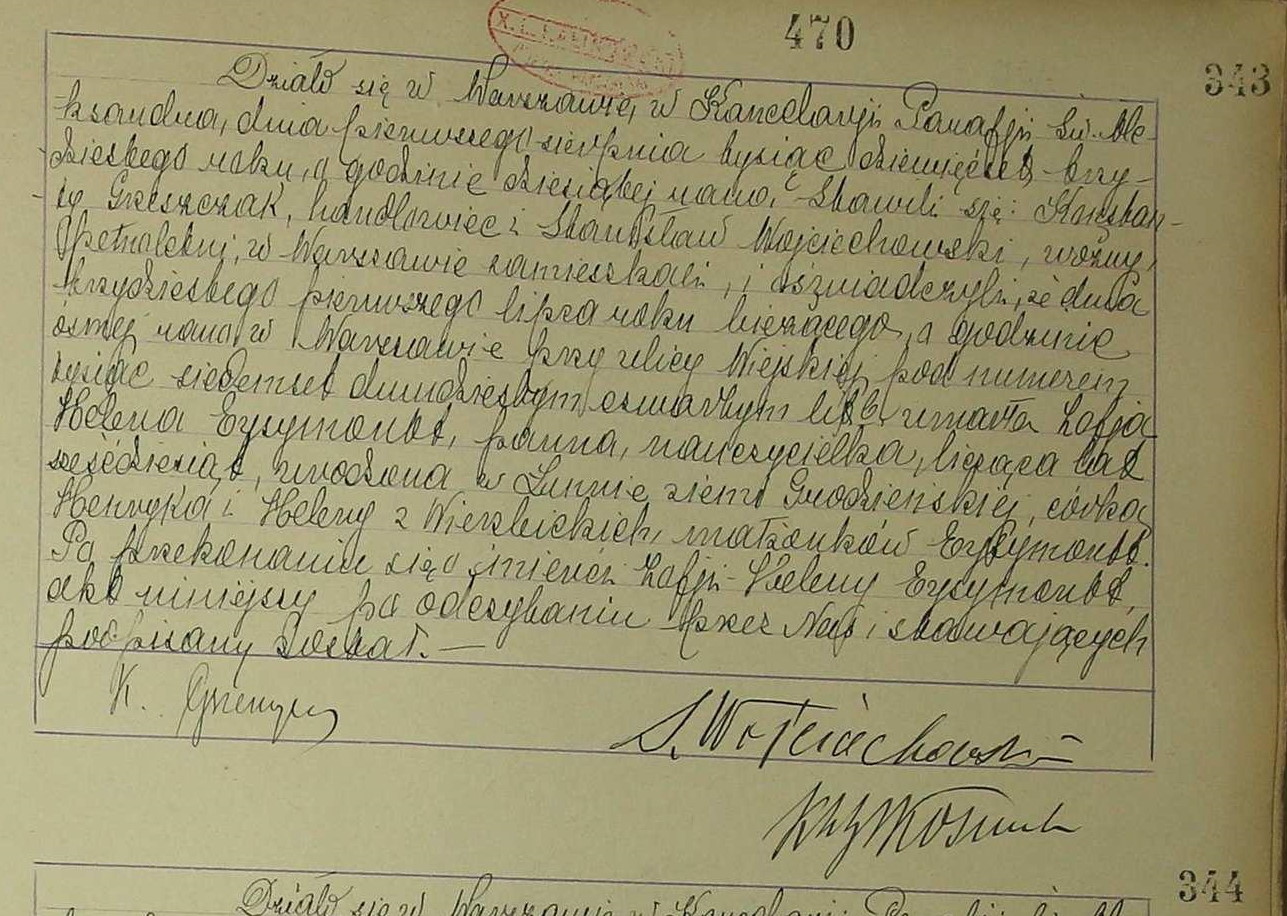 470
343
Działo się w Warszawie, w Kancelarji Parafji Św. Ale-
ksandra, dnia pierwszego sierpnia tysiąc dziewięćset trzy-
dziestego roku, o godzinie dziesiątej rano. Stawili się: Konstan-
ty Grzeszczak, handlowiec i Stanisław Wojciechowski, woźny,
pełnoletni, w Warszawie zamieszkali, i oświadczyli, że dnia
trzydziestego pierwszego lipca roku bieżącego, o godzinie
ósmej rano w Warszawie przy ulicy Wiejskiej pod numerem
tysiąc siedemset dwudziestym czwartym lit. umarła Zofja
Helena Eysymontt, panna, nauczycielka, licząca lat
sześćdziesiąt, urodzona w Łunnie ziemi Grodzieńskiej, córka
Henryka i Heleny z Wierzbickich, małżonków Eysymontt.
Po przekonaniu się o śmierci Zofji-Heleny Eysymontt,
akt niniejszy po odczytaniu przez Nas i stawających
podpisany został. —
K.
S. Wojciechowski
344
Działo się w Warszawie w Kancelarji